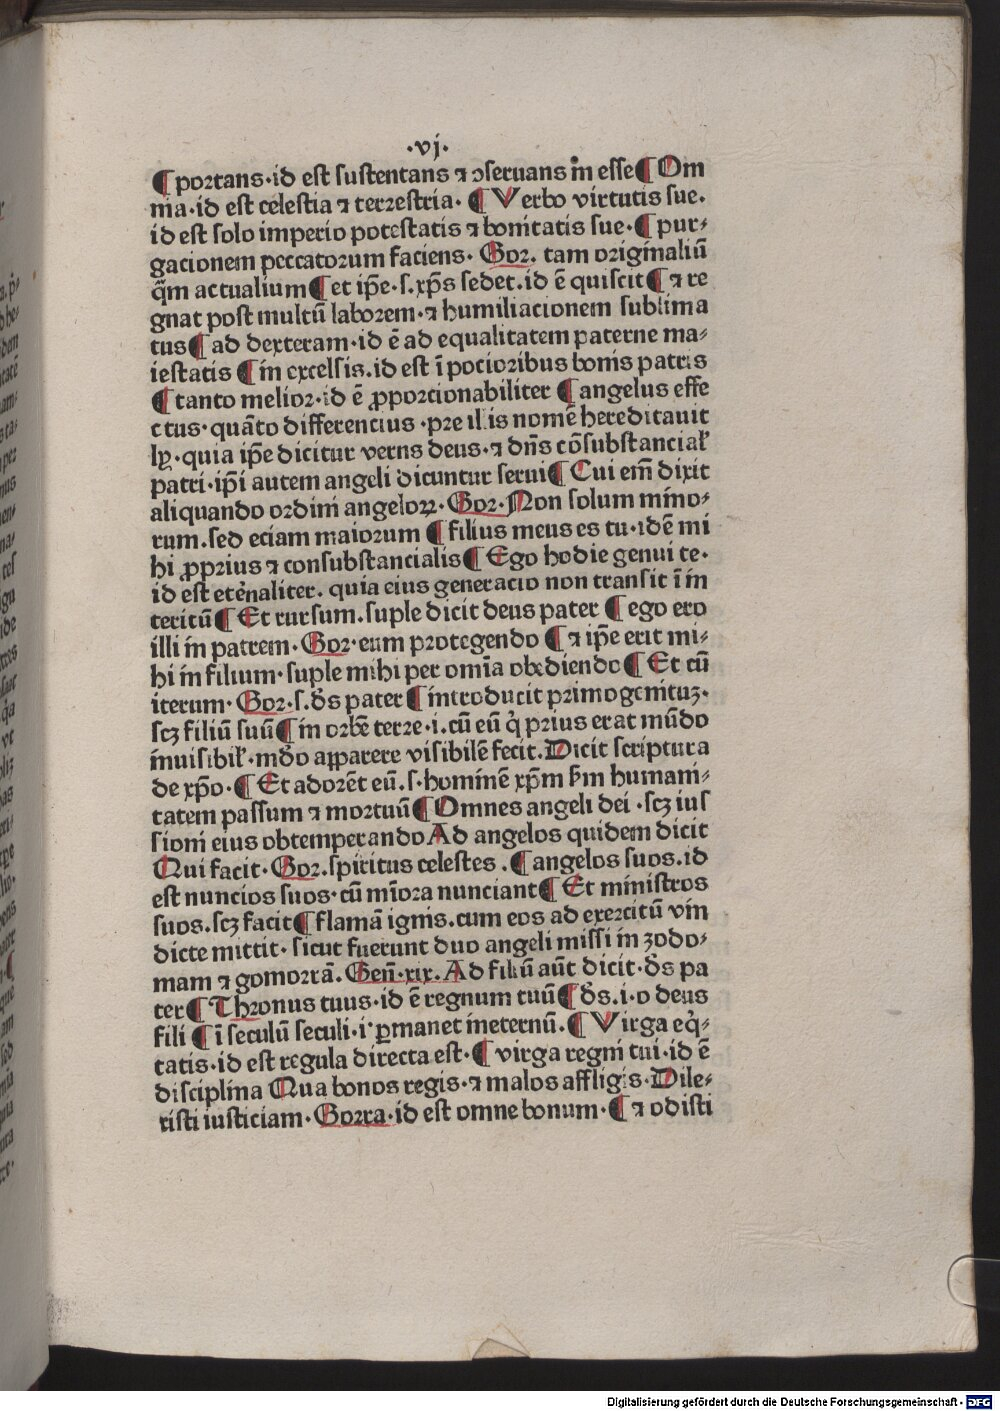 ·vj·
¶ portans·id est sustentans ⁊ ↄseruans in esse ¶ Om
nia·id est celestia ⁊ terrestria· ¶ Verbo virtutis sue.
id est solo imperio potestatis ⁊ bonitatis sue· ¶ pur⸗
gacionem peccatorum faciens· Gor. tam originaliū
q̄m actualium ¶ et ip̄e·s.xp̄s sedet.id ē quiscit ¶ ⁊ re
gnat post multū laborem·⁊ humiliacionem sublima
tus ¶ ad dexteram·id ē ad equalitatem paterne ma⸗
iestatis ¶ in excelsis.id est ī pocioribus bonis patris
¶ tanto melior·id ē ꝓporcionabiliter ¶ angelus effe
ctus·quāto differencius·pre illis nomē hereditauit
lꝫ·quia ip̄e dicitur verns deus·⁊ dn̄s cōsubstancial̕
patri·ip̄i autem angeli dicuntur serui ¶ Cui em̄ dixit
aliquando ordini angeloꝝ·Gor·Non solum mino⸗
rum.sed eciam maiorum ¶ filius meus es tu·idē mi
hi ꝓprius ⁊ consubstancialis ¶ Ego hodie genui te·
id est etēnaliter. quia eius generacio non transit ī in
teritū ¶ Et rursum.suple dicit deus pater ¶ ego ero
illi in patrem·Gor·eum protegendo ¶ ⁊ ip̄e erit mi⸗
hi in filium·suple mihi per omīa obediendo ¶ Et cū
iterum·Gor·s.dß pater ¶ introducit primogenituꝫ·
scꝫ filiū suū ¶ in orbē terre·i.cū eū q̇ prius erat mūdo
inuisibil̕·mdo apparere visibilē fecit.Dicit scriptura
de xp̄o· ¶ Et adorēt eū.s·hominē xp̄m ßm humani⸗
tatem passum ⁊ mortuū ¶ Omnes angeli dei·scꝫ ius
sioni eius obtemperando Ad angelos quidem dicit
Qui facit·Gor.spiritus celestes. ¶ angelos suos.id
est nuncios suos·cū mīora nunciant ¶ Et ministros
suos.scꝫ facit ¶ flamā ignis.cum eos ad exercitū vin
dicte mittit·sicut fuerunt duo angeli missi in zodo⸗
mam ⁊ gomorrā.Geñ·xix.Ad filiū aūt dicit·dß pa
ter ¶ Thronus tuus·id ē regnum tuū ¶ dß.i·o deus
fili ¶ ī seculū seculi·i·ꝑmanet ineternū. ¶ Virga eq̇⸗
tatis·id est regula directa est· ¶ virga regni tui·id ē
disciplina Qua bonos regis·⁊ malos affligis·Dile⸗
risti iusticiam·Gorra·id est omne bonum· ¶ ⁊ odisti
Digitalisierung gefördert durch die Deutsche Forschungsgemeinschaft - DFG